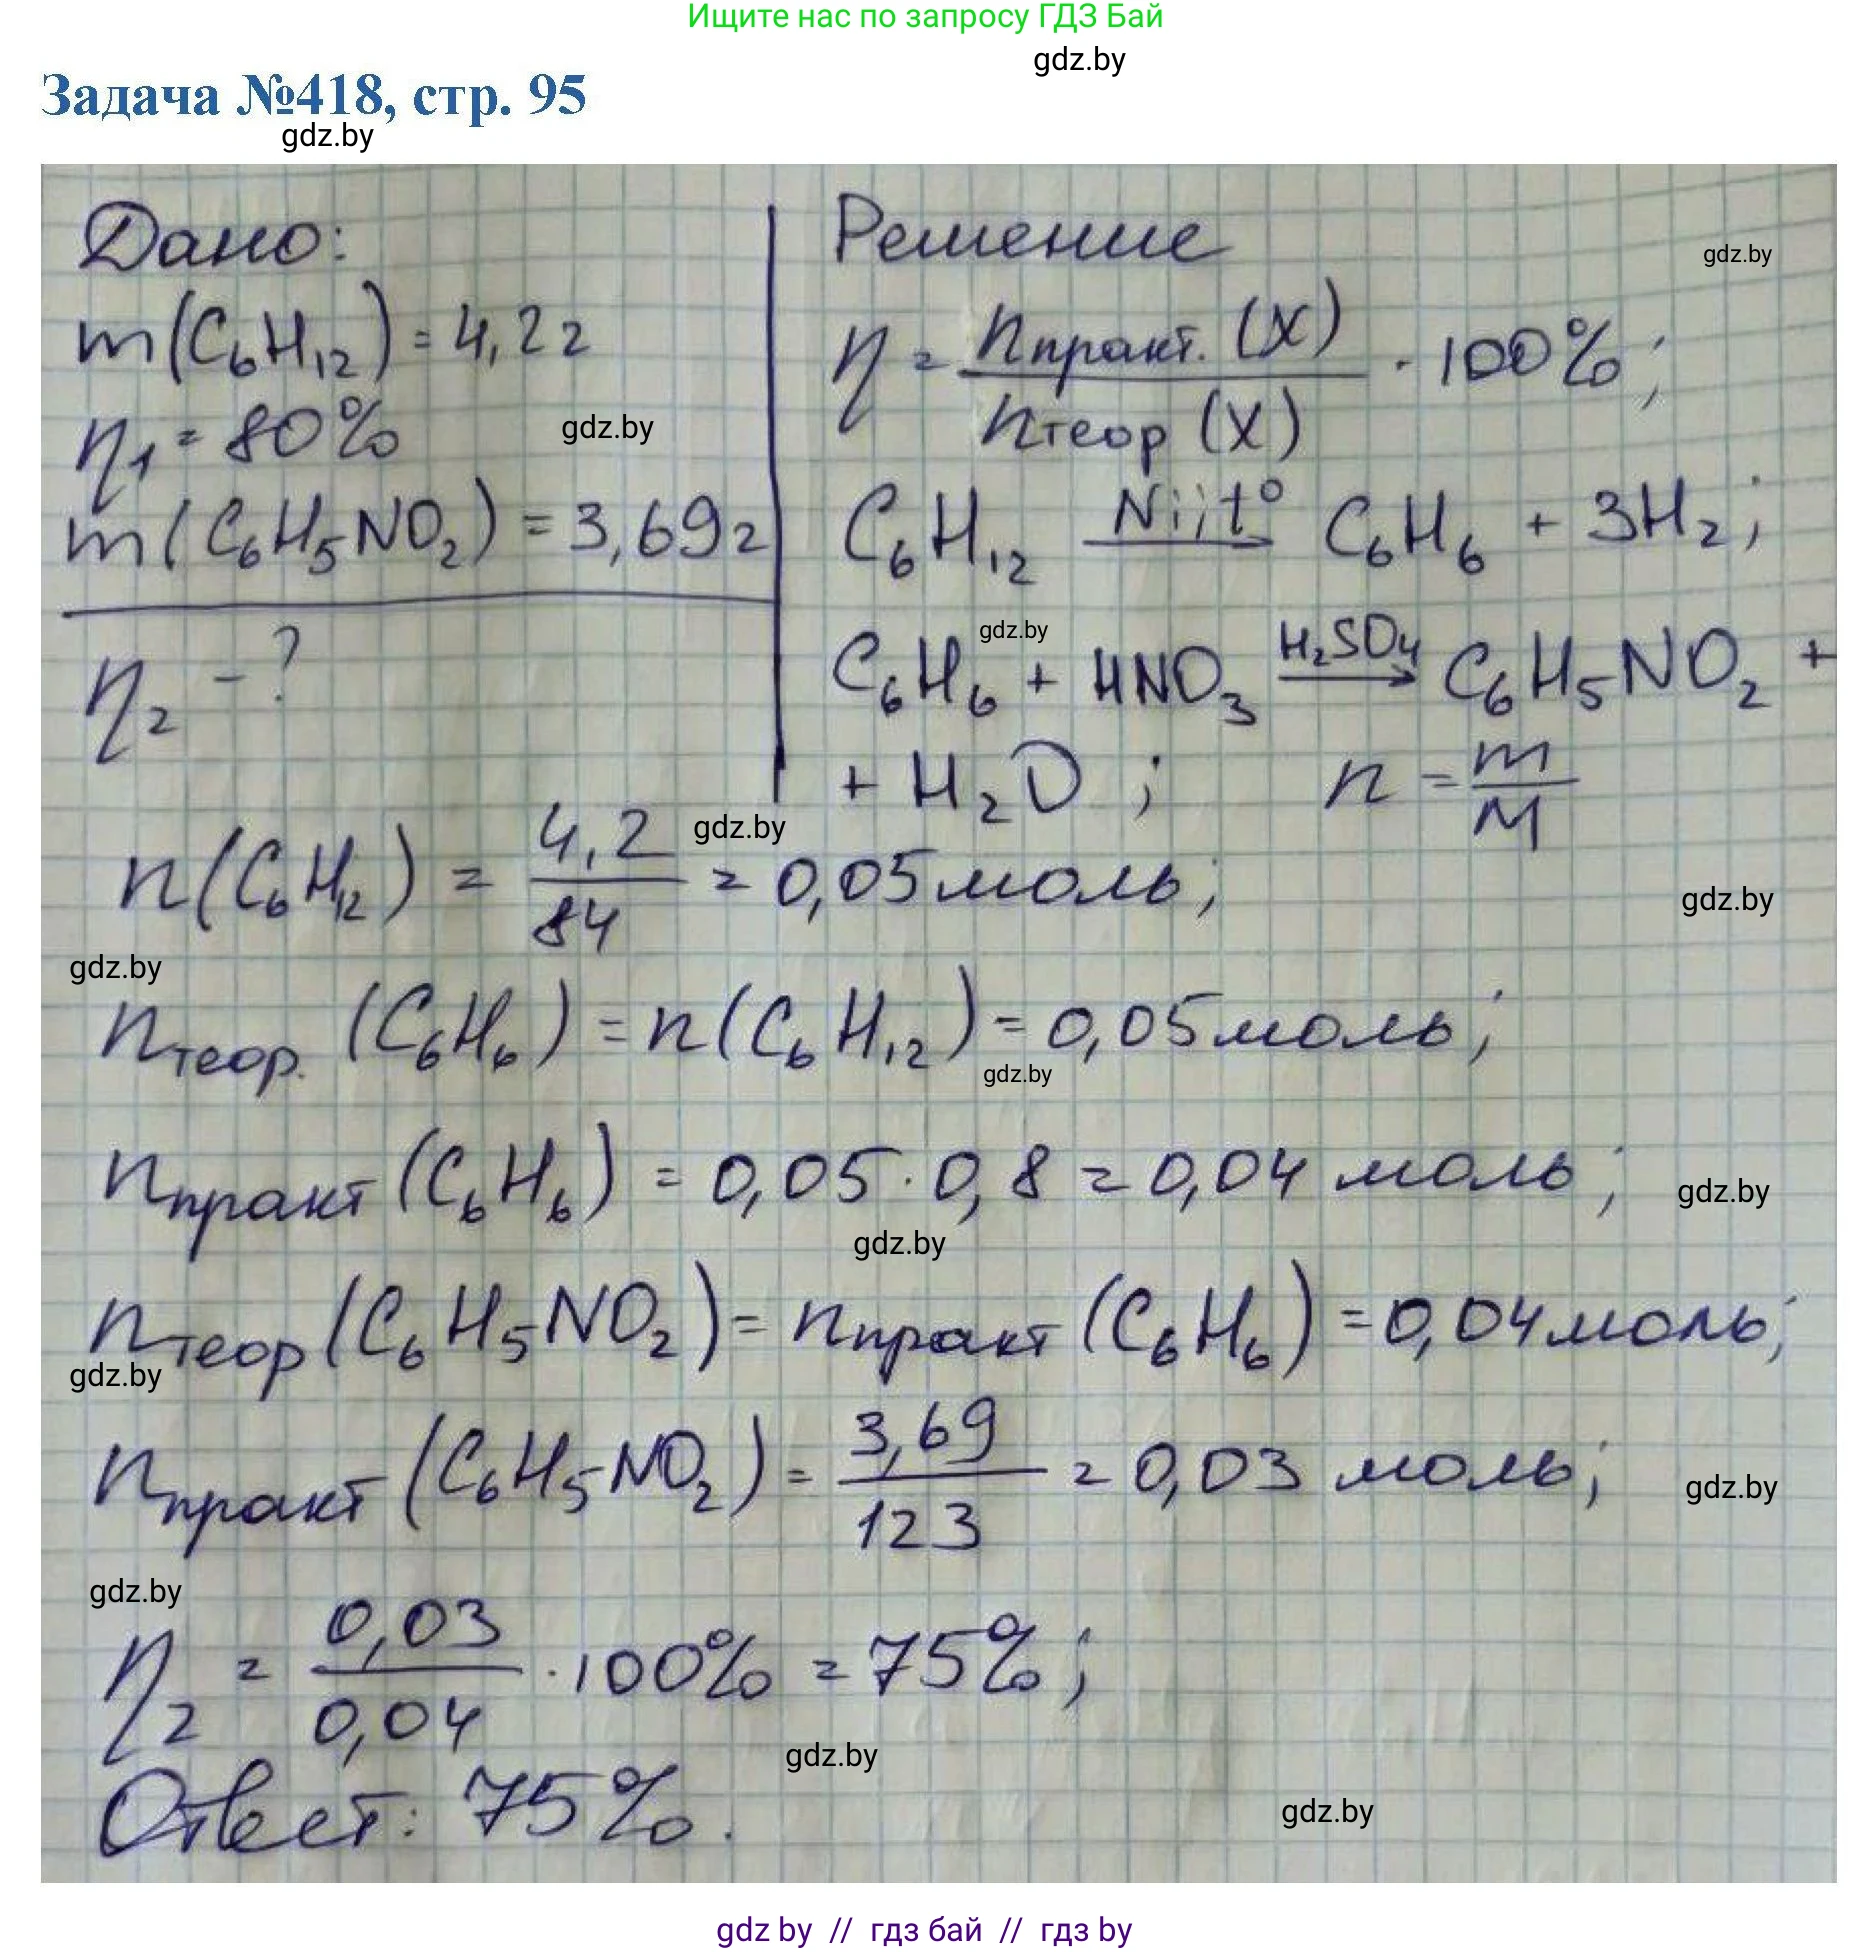 Ищите нас по запросу ГДЗ Бай
gdz.by
Задача №418, стр. 95
gdz.by
Дано:
m(C₆H₁₂) = 4,2 г
η₁ = 80%
gdz.by
m(C₆H₅NO₂) = 3,69 г
η₂ - ?
Решение
gdz.by
η = nпракт.(X) / nтеор(X) · 100%;
C₆H₁₂ Ni; t° → C₆H₆ + 3H₂;
gdz.by
C₆H₆ + HNO₃ H₂SO₄ → C₆H₅NO₂ +
+ H₂O; n = m/M
gdz.by
n(C₆H₁₂) = 4,2/84 = 0,05 моль;
gdz.by
gdz.by
nтеор.(C₆H₆) = n(C₆H₁₂) = 0,05 моль;
gdz.by
nпракт(C₆H₆) = 0,05 · 0,8 = 0,04 моль;
gdz.by
gdz.by
nтеор(C₆H₅NO₂) = nпракт(C₆H₆) = 0,04 моль;
gdz.by
nпракт(C₆H₅NO₂) = 3,69/123 = 0,03 моль;
gdz.by
gdz.by
η₂ = 0,03/0,04 · 100% = 75%;
gdz.by
Ответ: 75%.
gdz.by
gdz by // гдз бай // гдз by